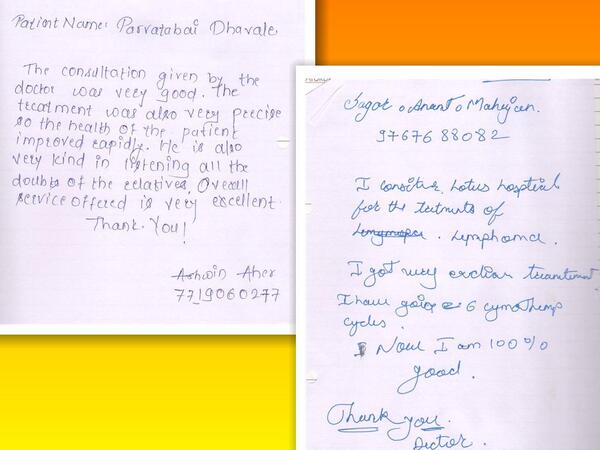 Patient Name: Parvatabai Dhavale
The consultation given by the
doctor was very good. The
treatment was also very precise
so the health of the patient
improved rapidly. He is also
very kind in listening all the
doubts of the relatives. Overall
service offered is very excellent.
Thank You!
Ashwin Aher
7719060277
Anant Mahajan
9767688082
I Lotus hospital
for the of
Lymphoma.
I got very
I have 6
cycles.
Now I am 100%
good.
Thank you.
Doctor.